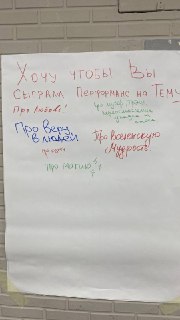 Хочу чтобы Вы
сыграли Перформанс на Тему
Про Любовь!
Про Веру
в людей
Про Вселенскую
Мудрость!
Про магию